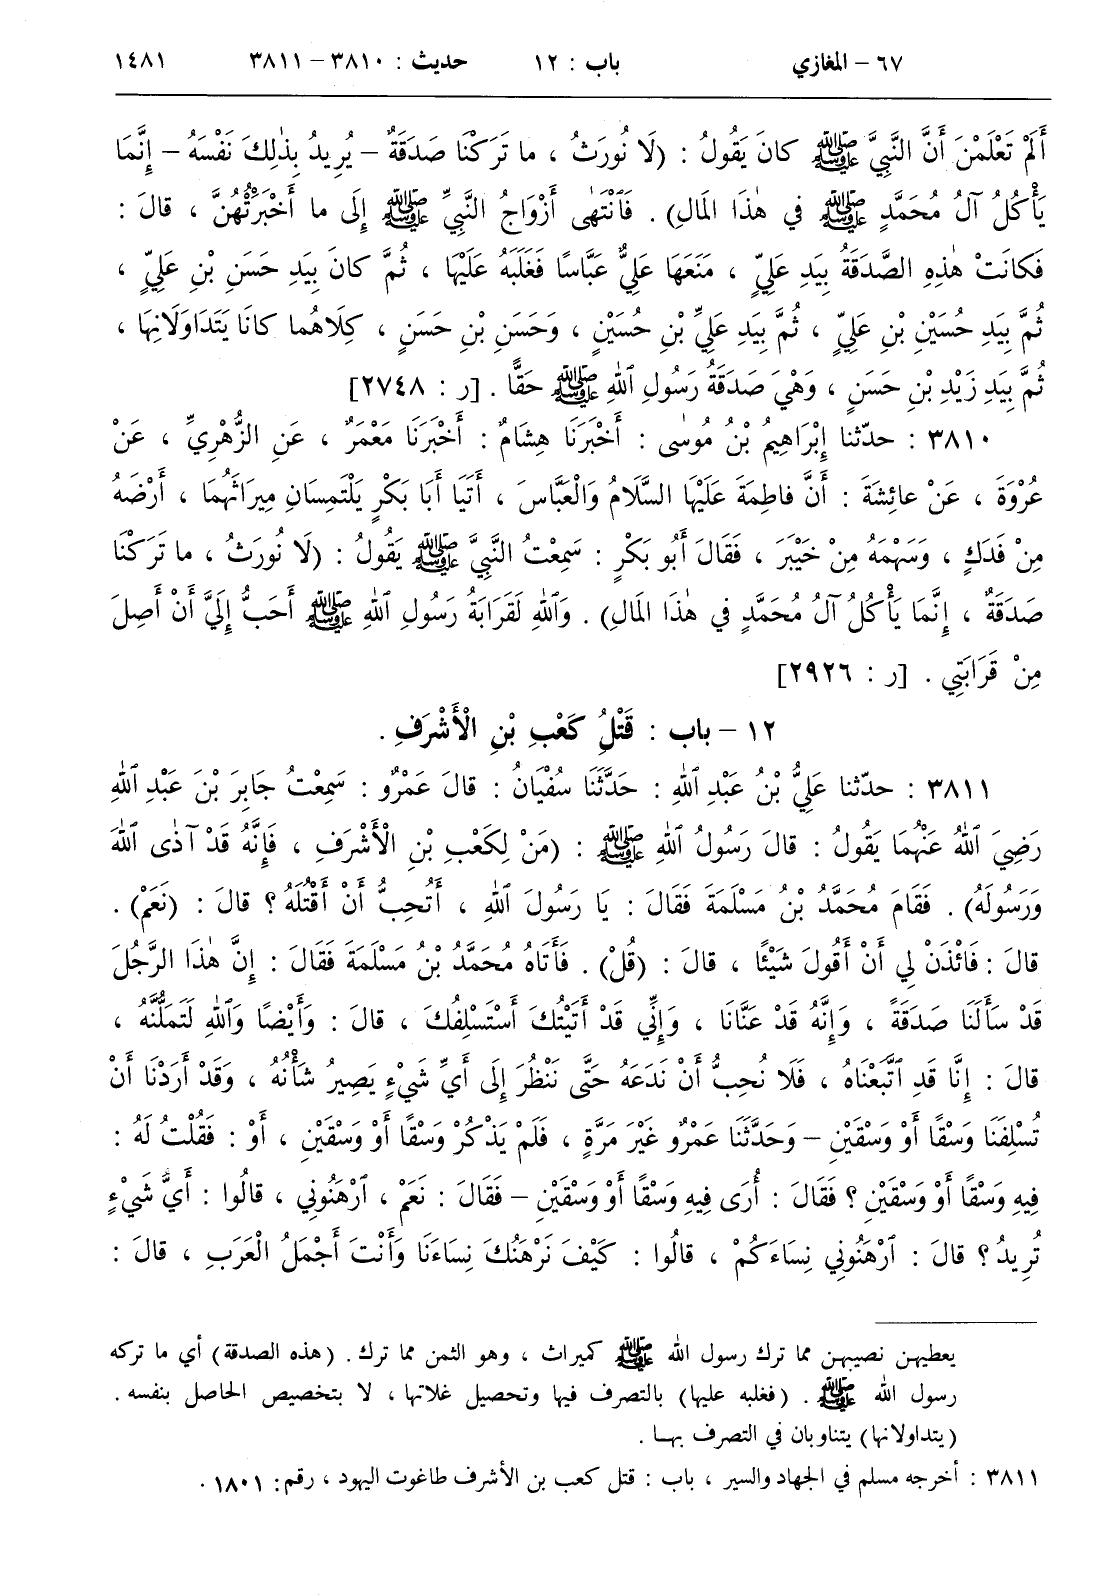 ٦٧ – المغازي باب : ١٢ حديث : ٣٨١٠ – ٣٨١١ ١٤٨١
أَلَمْ تَعْلَمْنَ أَنَّ النَّبِيَّ ﷺ كانَ يَقُولُ : (لَا نُورَثُ ، ما تَرَكْنَا صَدَقَةٌ – يُرِيدُ بِذٰلِكَ نَفْسَهُ – إِنَّمَا
يَأْكُلُ آلُ مُحَمَّدٍ ﷺ في هٰذَا المَالِ) . فَٱنْتَهٰى أَزْوَاجُ النَّبِيِّ ﷺ إِلَى ما أَخْبَرَتْهُنَّ ، قالَ :
فَكانَتْ هٰذِهِ الصَّدَقَةُ بِيَدِ عَلِيٍّ ، مَنَعَهَا عَلِيٌّ عَبَّاسًا فَغَلَبَهُ عَلَيْهَا ، ثُمَّ كانَ بِيَدِ حَسَنِ بْنِ عَلِيٍّ ،
ثُمَّ بِيَدِ حُسَيْنِ بْنِ عَلِيٍّ ، ثُمَّ بِيَدِ عَلِيِّ بْنِ حُسَيْنٍ ، وَحَسَنِ بْنِ حَسَنٍ ، كِلَاهُما كانَا يَتَدَاوَلَانِهَا ،
ثُمَّ بِيَدِ زَيْدِ بْنِ حَسَنٍ ، وَهْيَ صَدَقَةُ رَسُولِ ٱللهِ ﷺ حَقًّا . [ر : ٢٧٤٨]
٣٨١٠ : حدّثنا إِبْرَاهِيمُ بْنُ مُوسٰى : أَخْبَرَنَا هِشَامٌ : أَخْبَرَنَا مَعْمَرٌ ، عَنِ الزُّهْرِيِّ ، عَنْ
عُرْوَةَ ، عَنْ عائِشَةَ : أَنَّ فاطِمَةَ عَلَيْهَا السَّلَامُ وَالْعَبَّاسَ ، أَتَيَا أَبَا بَكْرٍ يَلْتَمِسَانِ مِيرَاثَهُمَا ، أَرْضَهُ
مِنْ فَدَكٍ ، وَسَهْمَهُ مِنْ خَيْبَرَ ، فَقَالَ أَبُو بَكْرٍ : سَمِعْتُ النَّبِيَّ ﷺ يَقُولُ : (لَا نُورَثُ ، ما تَرَكْنَا
صَدَقَةٌ ، إِنَّمَا يَأْكُلُ آلُ مُحَمَّدٍ في هٰذَا المَالِ) . وَٱللهِ لَقَرَابَةُ رَسُولِ ٱللهِ ﷺ أَحَبُّ إِلَيَّ أَنْ أَصِلَ
مِنْ قَرَابَتِي . [ر : ٢٩٢٦]
١٢ – باب : قَتْلُ كَعْبِ بْنِ الْأَشْرَفِ .
٣٨١١ : حدّثنا عَلِيُّ بْنُ عَبْدِ ٱللهِ : حَدَّثَنَا سُفْيَانُ : قالَ عَمْرٌو : سَمِعْتُ جَابِرَ بْنَ عَبْدِ ٱللهِ
رَضِيَ ٱللهُ عَنْهُمَا يَقُولُ : قالَ رَسُولُ ٱللهِ ﷺ : (مَنْ لِكَعْبِ بْنِ الْأَشْرَفِ ، فَإِنَّهُ قَدْ آذٰى ٱللهَ
وَرَسُولَهُ) . فَقَامَ مُحَمَّدُ بْنُ مَسْلَمَةَ فَقَالَ : يَا رَسُولَ ٱللهِ ، أَتُحِبُّ أَنْ أَقْتُلَهُ ؟ قالَ : (نَعَمْ) .
قالَ : فَائْذَنْ لِي أَنْ أَقُولَ شَيْئًا ، قالَ : (قُلْ) . فَأَتَاهُ مُحَمَّدُ بْنُ مَسْلَمَةَ فَقَالَ : إِنَّ هٰذَا الرَّجُلَ
قَدْ سَأَلَنَا صَدَقَةً ، وَإِنَّهُ قَدْ عَنَّانَا ، وَإِنِّي قَدْ أَتَيْتُكَ أَسْتَسْلِفُكَ ، قالَ : وَأَيْضًا وَٱللهِ لَتَمَلُّنَّهُ ،
قالَ : إِنَّا قَدِ ٱتَّبَعْنَاهُ ، فَلَا نُحِبُّ أَنْ نَدَعَهُ حَتَّى نَنْظُرَ إِلَى أَيِّ شَيْءٍ يَصِيرُ شَأْنُهُ ، وَقَدْ أَرَدْنَا أَنْ
تُسْلِفَنَا وَسْقًا أَوْ وَسْقَيْنِ – وَحَدَّثَنَا عَمْرٌو غَيْرَ مَرَّةٍ ، فَلَمْ يَذْكُرْ وَسْقًا أَوْ وَسْقَيْنِ ، أَوْ : فَقُلْتُ لَهُ :
فِيهِ وَسْقًا أَوْ وَسْقَيْنِ ؟ فَقَالَ : أُرَى فِيهِ وَسْقًا أَوْ وَسْقَيْنِ – فَقَالَ : نَعَمْ ، ٱرْهَنُونِي ، قالُوا : أَيُّ شَيْءٍ
تُرِيدُ ؟ قالَ : ٱرْهَنُونِي نِسَاءَكُمْ ، قالُوا : كَيْفَ نَرْهَنُكَ نِسَاءَنَا وَأَنْتَ أَجْمَلُ الْعَرَبِ ، قالَ :
يعطيهن نصيبهن مما ترك رسول الله ﷺ كميراث ، وهو الثمن مما ترك . (هذه الصدقة) أي ما تركه
رسول الله ﷺ . (فغلبه عليها) بالتصرف فيها وتحصيل غلاتها ، لا بتخصيص الحاصل بنفسه .
(يتداولانها) يتناوبان في التصرف بهـا .
٣٨١١ : أخرجه مسلم في الجهاد والسير ، باب : قتل كعب بن الأشرف طاغوت اليهود ، رقم : ١٨٠١ .